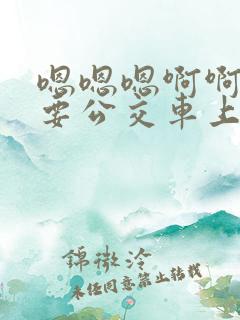 嗯嗯嗯啊啊
要公交車上
錦微泠
未经同意禁止转载